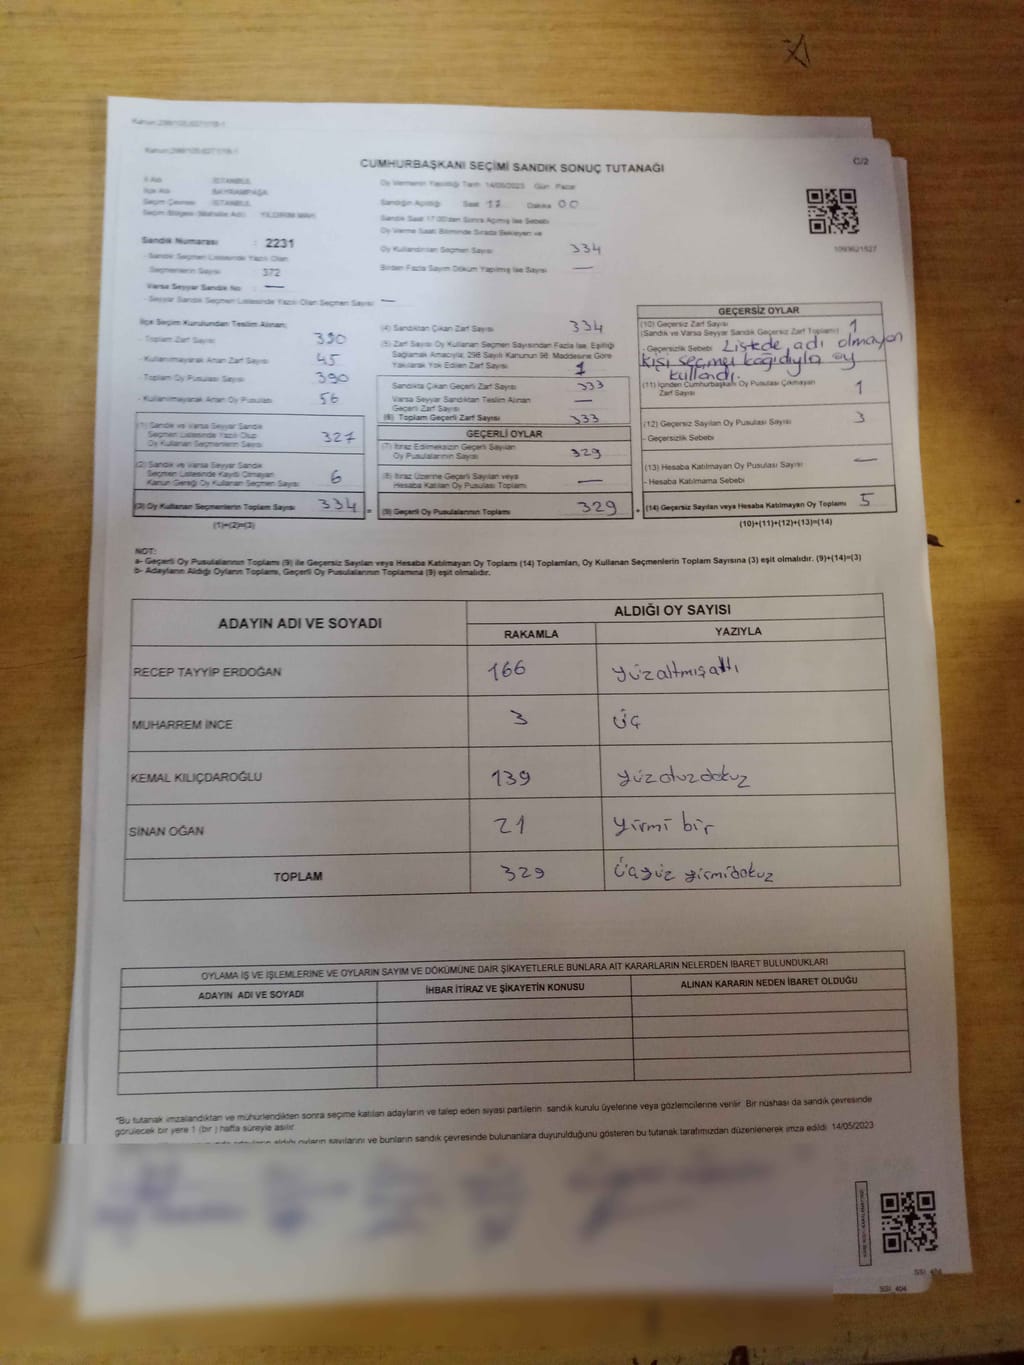 Kanun:298/105,6271/18-1
Kanun:298/105,6271/18-1
CUMHURBAŞKANI SEÇİMİ SANDIK SONUÇ TUTANAĞI
C/2
İl Adı : İSTANBUL
İlçe Adı : BAYRAMPAŞA
Seçim Çevresi : İSTANBUL
Seçim Bölgesi (Mahalle Adı) : YILDIRIM MAH.
Sandık Numarası : 2231
- Sandık Seçmen Listesinde Yazılı Olan
Seçmenlerin Sayısı : 372
Varsa Seyyar Sandık No : —
- Seyyar Sandık Seçmen Listesinde Yazılı Olan Seçmen Sayısı : —
Oy Vermenin Yapıldığı Tarih 14/05/2023 Gün Pazar
Sandığın Açıldığı Saat 17 Dakika 00
Sandık Saat 17:00'den Sonra Açılmış İse Sebebi
Oy Verme Saati Bitiminde Sırada Bekleyen ve
Oy Kullandırılan Seçmen Sayısı 334
Birden Fazla Sayım Döküm Yapılmış İse Sayısı —
1093621527
İlçe Seçim Kurulundan Teslim Alınan;
- Toplam Zarf Sayısı 390
- Kullanılmayarak Artan Zarf Sayısı 45
- Toplam Oy Pusulası Sayısı 390
- Kullanılmayarak Artan Oy Pusulası 56
(1) Sandık ve Varsa Seyyar Sandık
Seçmen Listesinde Yazılı Olup
Oy Kullanan Seçmenlerin Sayısı 327
(2) Sandık ve Varsa Seyyar Sandık
Seçmen Listesinde Kayıtlı Olmayan
Kanun Gereği Oy Kullanan Seçmen Sayısı 6
(3) Oy Kullanan Seçmenlerin Toplam Sayısı 334 =
(1)+(2)=(3)
(4) Sandıktan Çıkan Zarf Sayısı 334
(5) Zarf Sayısı Oy Kullanan Seçmen Sayısından Fazla İse, Eşitliği
Sağlamak Amacıyla, 298 Sayılı Kanunun 98. Maddesine Göre
Yakılarak Yok Edilen Zarf Sayısı 1
Sandıkta Çıkan Geçerli Zarf Sayısı 333
Varsa Seyyar Sandıktan Teslim Alınan
Geçerli Zarf Sayısı —
(6) Toplam Geçerli Zarf Sayısı 333
GEÇERLİ OYLAR
(7) İtiraz Edilmeksizin Geçerli Sayılan
Oy Pusulalarının Sayısı 329
(8) İtiraz Üzerine Geçerli Sayılan veya
Hesaba Katılan Oy Pusulası Toplamı —
(9) Geçerli Oy Pusulalarının Toplamı 329 +
GEÇERSİZ OYLAR
(10) Geçersiz Zarf Sayısı 1
(Sandık ve Varsa Seyyar Sandık Geçersiz Zarf Toplamı)
- Geçersizlik Sebebi Listede adı olmayan
kişi seçmen kağıdıyla oy
kullandı.
(11) İçinden Cumhurbaşkanı Oy Pusulası Çıkmayan
Zarf Sayısı 1
(12) Geçersiz Sayılan Oy Pusulası Sayısı 3
- Geçersizlik Sebebi
(13) Hesaba Katılmayan Oy Pusulası Sayısı —
- Hesaba Katılmama Sebebi
(14) Geçersiz Sayılan veya Hesaba Katılmayan Oy Toplamı 5
(10)+(11)+(12)+(13)=(14)
NOT:
a- Geçerli Oy Pusulalarının Toplamı (9) ile Geçersiz Sayılan veya Hesaba Katılmayan Oy Toplamı (14) Toplamları, Oy Kullanan Seçmenlerin Toplam Sayısına (3) eşit olmalıdır. (9)+(14)=(3)
b- Adayların Aldığı Oyların Toplamı, Geçerli Oy Pusulalarının Toplamına (9) eşit olmalıdır.
ADAYIN ADI VE SOYADI
ALDIĞI OY SAYISI
RAKAMLA
YAZIYLA
RECEP TAYYİP ERDOĞAN 166 yüzaltmışaltı
MUHARREM İNCE 3 üç
KEMAL KILIÇDAROĞLU 139 yüzotuzdokuz
SİNAN OĞAN 21 yirmi bir
TOPLAM 329 üçyüz yirmidokuz
OYLAMA İŞ VE İŞLEMLERİNE VE OYLARIN SAYIM VE DÖKÜMÜNE DAİR ŞİKAYETLERLE BUNLARA AİT KARARLARIN NELERDEN İBARET BULUNDUKLARI
ADAYIN ADI VE SOYADI
İHBAR İTİRAZ VE ŞİKAYETİN KONUSU
ALINAN KARARIN NEDEN İBARET OLDUĞU
*Bu tutanak imzalandıktan ve mühürlendikten sonra seçime katılan adayların ve talep eden siyasi partilerin sandık kurulu üyelerine veya gözlemcilerine verilir. Bir nüshası da sandık çevresinde
görülecek bir yere 1 (bir) hafta süreyle asılır.
aldığı oyların sayılarını ve bunların sandık çevresinde bulunanlara duyurulduğunu gösteren bu tutanak tarafımızdan düzenlenerek imza edildi. 14/05/2023
SSI_404
SSI_404